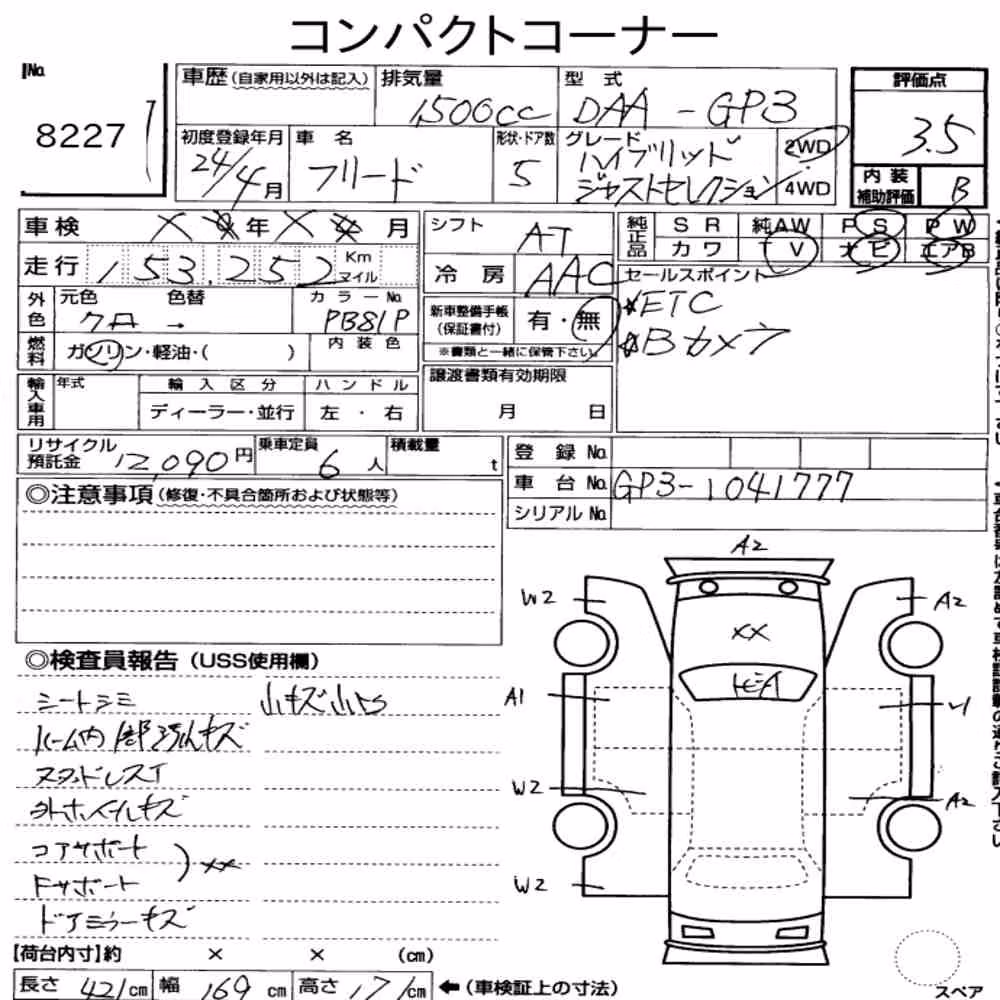 コンパクトコーナー
No.
8227
車歴(自家用以外は記入)
排気量
1500cc
型 式
DAA-GP3
評価点
3.5
内装補助評価
B
初度登録年月
24/4月
車 名
フリード
形状・ドア数
5
グレード
ハイブリッド
ジャストセレクション
2WD
4WD
車検 年 月
走行 153,252 Km
マイル
シフト AT
冷房 AAC
純正品
SR 純AW PS PW
カワ TV ナビ エアB
セールスポイント
*ETC
*Bカメラ
外色
元色
色替
カラーNo.
PB81P
燃料
ガソリン・軽油・( )
内装色
新車整備手帳
(保証書付)
有・無
※書類と一緒に保管下さい。
輸入車用
年式
輸入区分
ディーラー・並行
ハンドル
左・右
譲渡書類有効期限
月 日
リサイクル
預託金 12,090円
乗車定員
6人
積載量
t
登録No.
車台No. GP3-1041777
シリアルNo.
◎注意事項(修復・不具合箇所および状態等)
◎検査員報告(USS使用欄)
シートシミ
スタッドレスT
外ホイールキズ
コアサポート
Fサポート
)××
ドアミラーキズ
A2
W2
A2
××
A1
W2
A2
W2
【荷台内寸】約 × × (cm)
長さ 421cm 幅 169cm 高さ 171cm ←(車検証上の寸法)
スペア